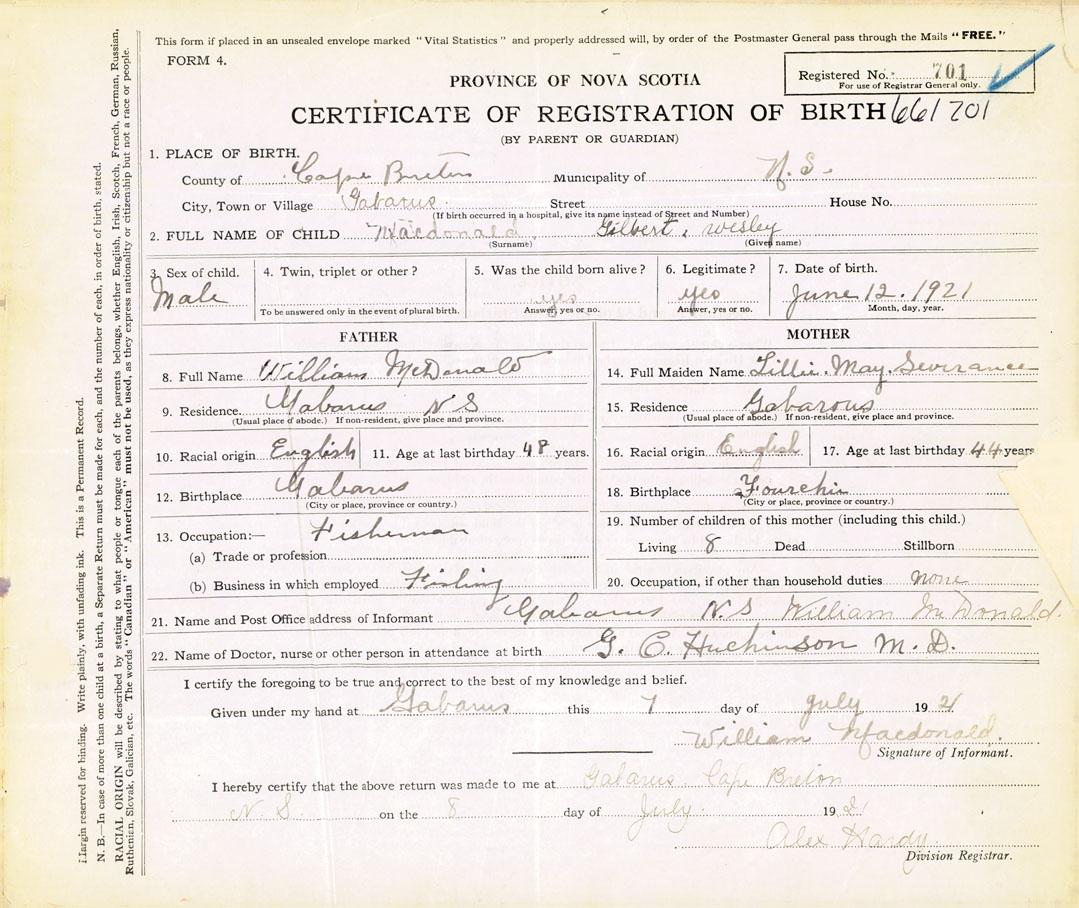 This form if placed in an unsealed envelope marked "Vital Statistics" and properly addressed will, by order of the Postmaster General pass through the Mails "FREE."
FORM 4.
Registered No. 701
For use of Registrar General only.
PROVINCE OF NOVA SCOTIA
CERTIFICATE OF REGISTRATION OF BIRTH 661701
(BY PARENT OR GUARDIAN)
1. PLACE OF BIRTH.
County of Cape Breton Municipality of N.S.
City, Town or Village Gabarus Street House No.
(If birth occurred in a hospital, give its name instead of Street and Number)
2. FULL NAME OF CHILD Macdonald Gilbert, Wesley
(Surname) (Given name)
3. Sex of child. 4. Twin, triplet or other? 5. Was the child born alive? 6. Legitimate? 7. Date of birth.
Male yes yes June 12. 1921
To be answered only in the event of plural birth. Answer, yes or no. Answer, yes or no. Month, day, year.
FATHER
8. Full Name William McDonald
9. Residence. Gabarus N S
(Usual place of abode.) If non-resident, give place and province.
10. Racial origin English 11. Age at last birthday 48 years.
12. Birthplace Gabarus
(City or place, province or country.)
13. Occupation:— Fisherman
(a) Trade or profession
(b) Business in which employed Fishing
MOTHER
14. Full Maiden Name Lillie May Severance
15. Residence Gabarous
(Usual place of abode.) If non-resident, give place and province.
16. Racial origin English 17. Age at last birthday 44 years
18. Birthplace Fourchie
(City or place, province or country.)
19. Number of children of this mother (including this child.)
Living 8 Dead Stillborn
20. Occupation, if other than household duties none
21. Name and Post Office address of Informant Gabarus N.S William McDonald.
22. Name of Doctor, nurse or other person in attendance at birth G. C. Huchinson M. D.
I certify the foregoing to be true and correct to the best of my knowledge and belief.
Given under my hand at Gabarus this 7 day of July 1921
William Macdonald.
Signature of Informant.
I hereby certify that the above return was made to me at Gabarus Cape Breton
N.S. on the 8 day of July 1921
Alex Hardy
Division Registrar.
Margin reserved for binding. Write plainly, with unfading ink. This is a Permanent Record.
N. B.—In case of more than one child at a birth, a Separate Return must be made for each, and the number of each, in order of birth, stated.
RACIAL ORIGIN will be described by stating to what people or tongue each of the parents belongs, whether English, Irish, Scotch, French, German, Russian,
Ruthenian, Slovak, Galician, etc. The words "Canadian" or "American" must not be used, as they express nationality or citizenship but not a race or people.